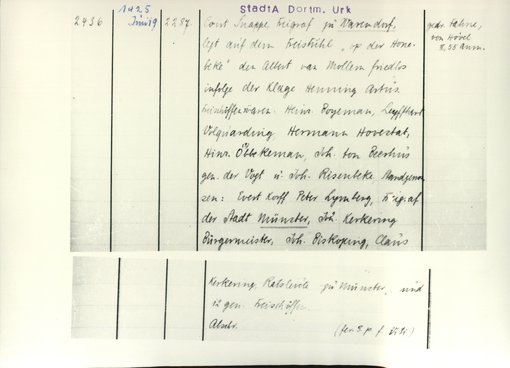 StadtA Dortm. Urk
2436 1425 Juni 19 2287. Cont Snappe Freigraf zu Warendorf,
legt auf dem Freistuhl "up der Hone-
beke" den Albert van Mollem friedlos
infolge der Klage Henning
Freischöffen waren: Heinr. Bogeman,
Volquarding, Hermann Hovestat,
Hinr. Ottekeman, Joh. ton Beerhus
gen. der Vogt u. Joh. Risenbeke. Standgenos-
sen: Evert Korff Peter Lymberg, Freigraf
der Stadt Münster, Joh. Kerkering
Bürgermeister, Joh. Biskoping, Claus
gedr. Fahne,
von Hövel
S. 55 Anm.
Kerkering Ratsleute zu Münster, und
12 gen. Freischöffen.
Abschr.